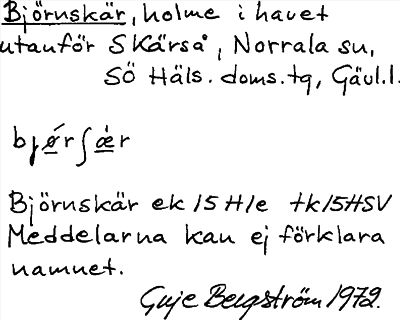 Björnskär, holme i havet
utanför Skärså, Norrala sn,
SÖ Häls. doms.tg, Gävl.l.
Björnskär ek 15 H1e tk15HSV
Meddelarna kan ej förklara
namnet.
Bergström 1972.